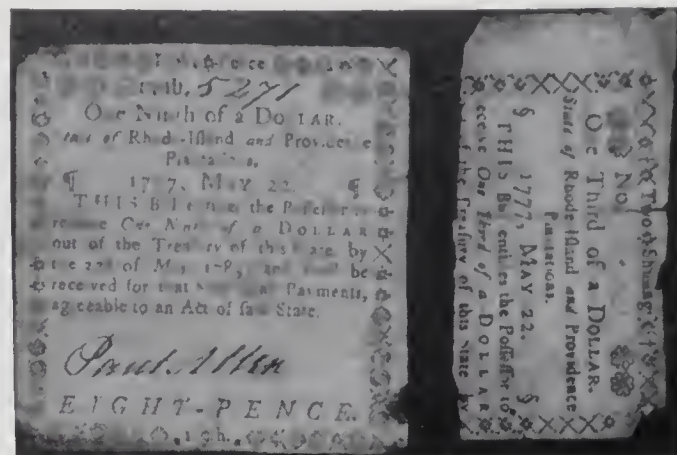 Numb. 5271
One Ninth of a DOLLAR.
State of Rhode-Island and Providence
Plantations,
¶ 1777, MAY 22. ¶
THIS Bill entitles the Possessor to
receive One Ninth of a DOLLAR
out of the Treasury of this State, by
the 22d of May and shall be
received for that in all Payments,
agreeable to an Act of said State.
Paul Allen
EIGHT-PENCE.
Two Shillings
No.
One Third of a DOLLAR.
State of Rhode Island and Providence
Plantations.
§ 1777, MAY 22. §
THIS Bill entitles the Possessor to
receive One Third of a DOLLAR
out of the Treasury of this State by